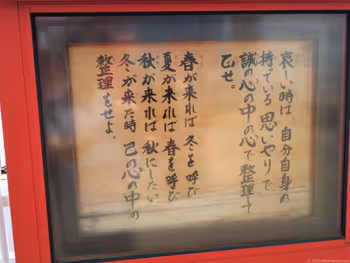 哀しい時は、自分自身の
持っている思いやりで
誠の心の中の心で整理す
乙せ。
春が来れば冬を呼び
夏が来れば春を呼び
秋が来れば秋にしたい
冬が来た時己の心の中の
整理をせよ。